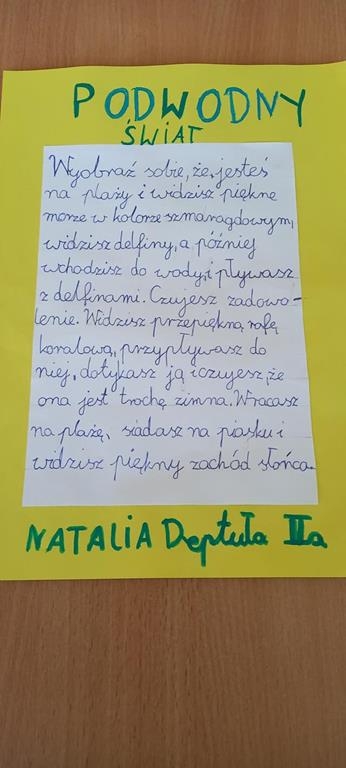 PODWODNY
ŚWIAT
Wyobraź sobie, że jesteś
na plaży i widzisz piękne
morze w kolorze szmaragdowym,
widzisz delfiny, a później
wchodzisz do wody, i pływasz
z delfinami. Czujesz zadowo-
lenie. Widzisz przepiękną rafę
koralową, przypływasz do
niej, dotykasz ją i czujesz, że
ona jest trochę zimna. Wracasz
na plażę, siadasz na piasku i
widzisz piękny zachód słońca.
NATALIA Deptuła IIa